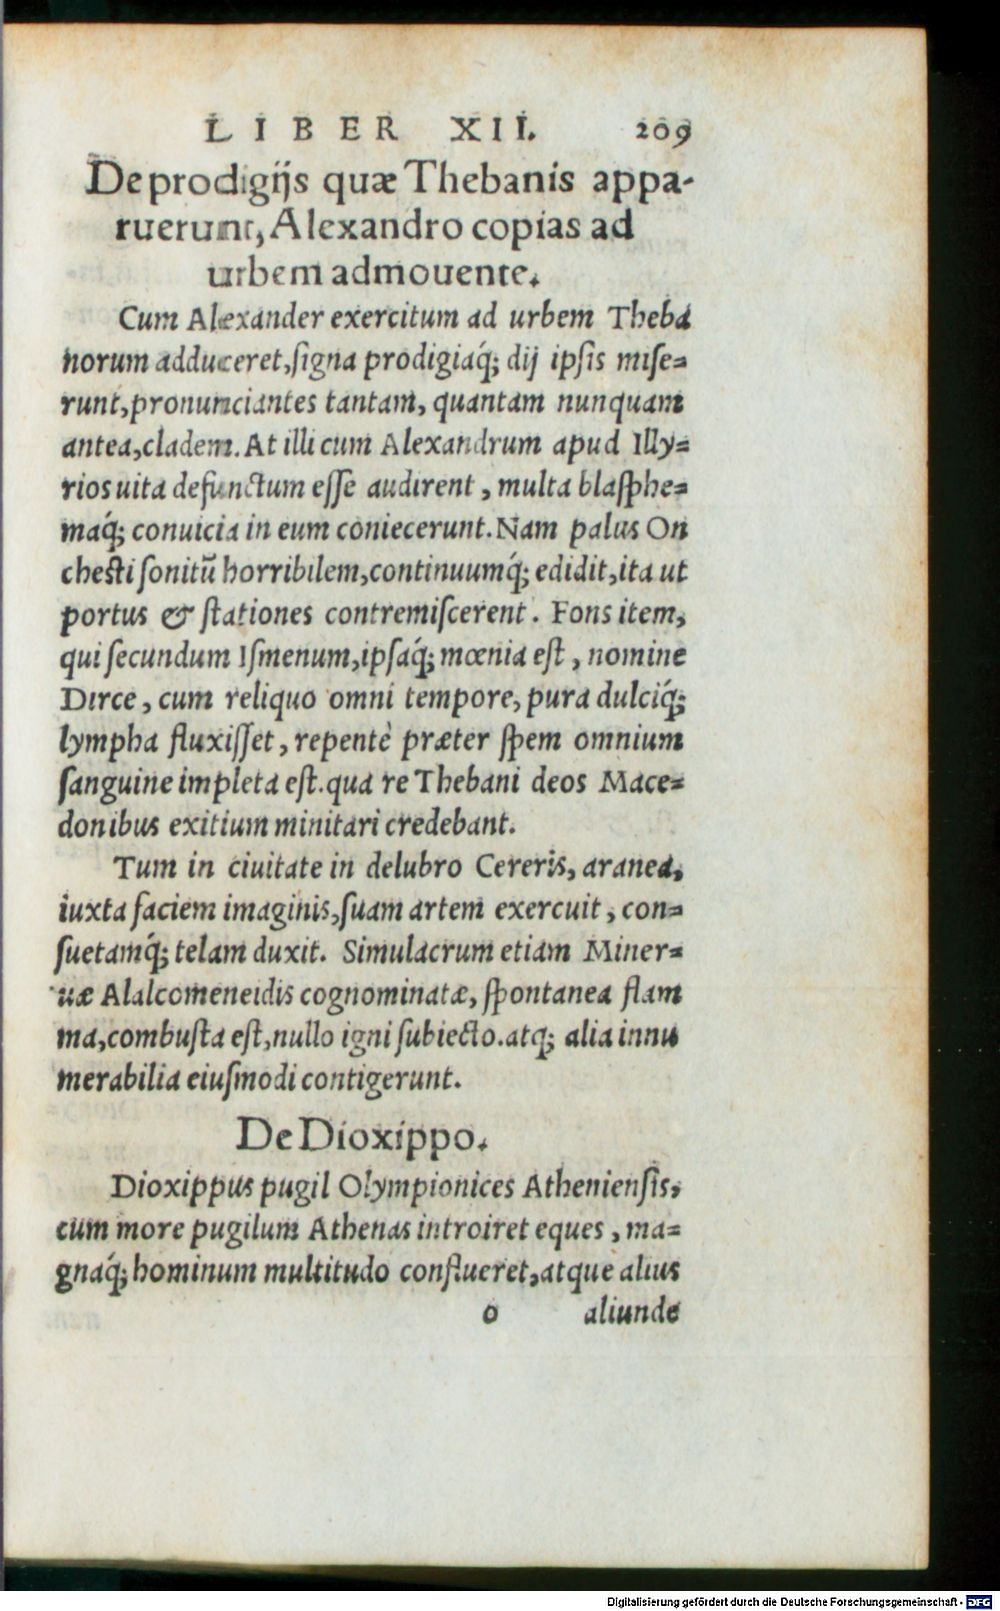 LIBER XII. 209
De prodigijs quæ Thebanis appa-
ruerunt, Alexandro copias ad
urbem admouente.
Cum Alexander exercitum ad urbem Thebá
norum adduceret, ſigna prodigiaq́; dij ipſis miſe=
runt, pronunciantes tantam, quantam nunquam
antea, cladem. At illi cum Alexandrum apud Illy=
rios uita defunctum eſſe audirent, multa blaſphe=
maq́; conuicia in eum coniecerunt. Nam palus On
cheſti ſonitũ horribilem, continuumq́; edidit, ita ut
portus & ſtationes contremiſcerent. Fons item,
qui ſecundum Iſmenum, ipſaq́; mœnia eſt, nomine
Dirce, cum reliquo omni tempore, pura dulciq́;
lympha fluxiſſet, repentè præter ſpem omnium
ſanguine impleta eſt. qua re Thebani deos Mace=
donibus exitium minitari credebant.
Tum in ciuitate in delubro Cereris, aranea,
iuxta faciem imaginis, ſuam artem exercuit, con=
ſuetamq́; telam duxit. Simulacrum etiam Miner=
uæ Alalcomeneidis cognominatæ, ſpontanea flam
ma, combuſta eſt, nullo igni ſubiecto. atq; alia innu
merabilia eiuſmodi contigerunt.
De Dioxippo.
Dioxippus pugil Olympionices Athenienſis,
cum more pugilum Athenas introiret eques, ma=
gnaq́; hominum multitudo conflueret, atque alius
o aliunde
Digitalisierung gefördert durch die Deutsche Forschungsgemeinschaft - DFG